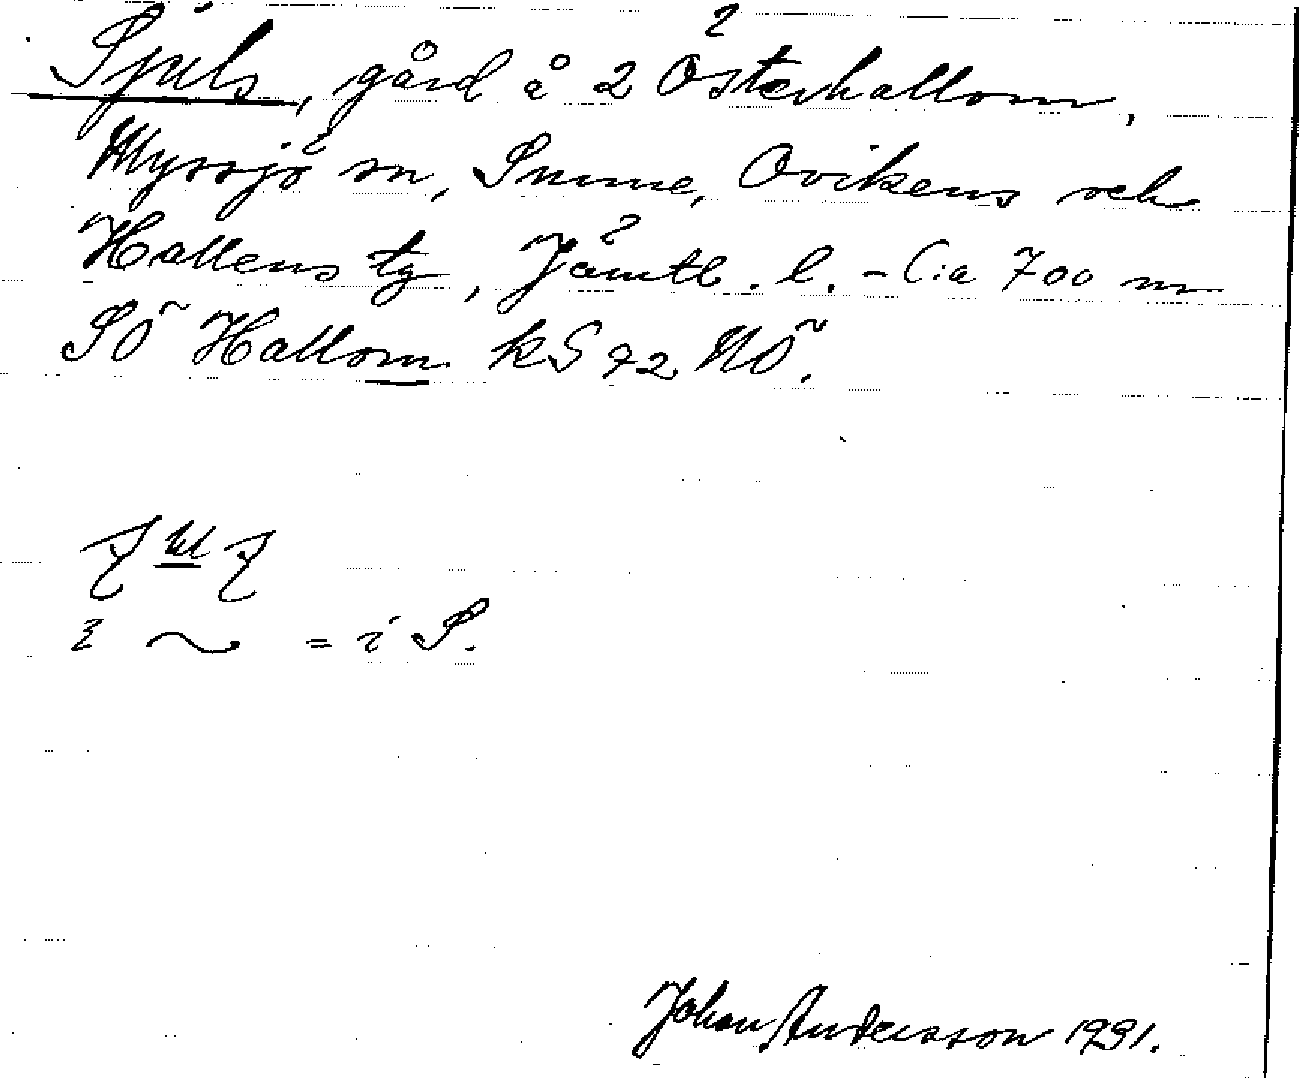 Sjuls, gård å 2 Österhallom,
Myssjö sn, Sunne, Ovikens och
Hallens tg, Jämtl. l. - C:a 700 m
SÖ Hallom kS 72 NÖ.
i ~ = i S.
Johan Andersson 1931.